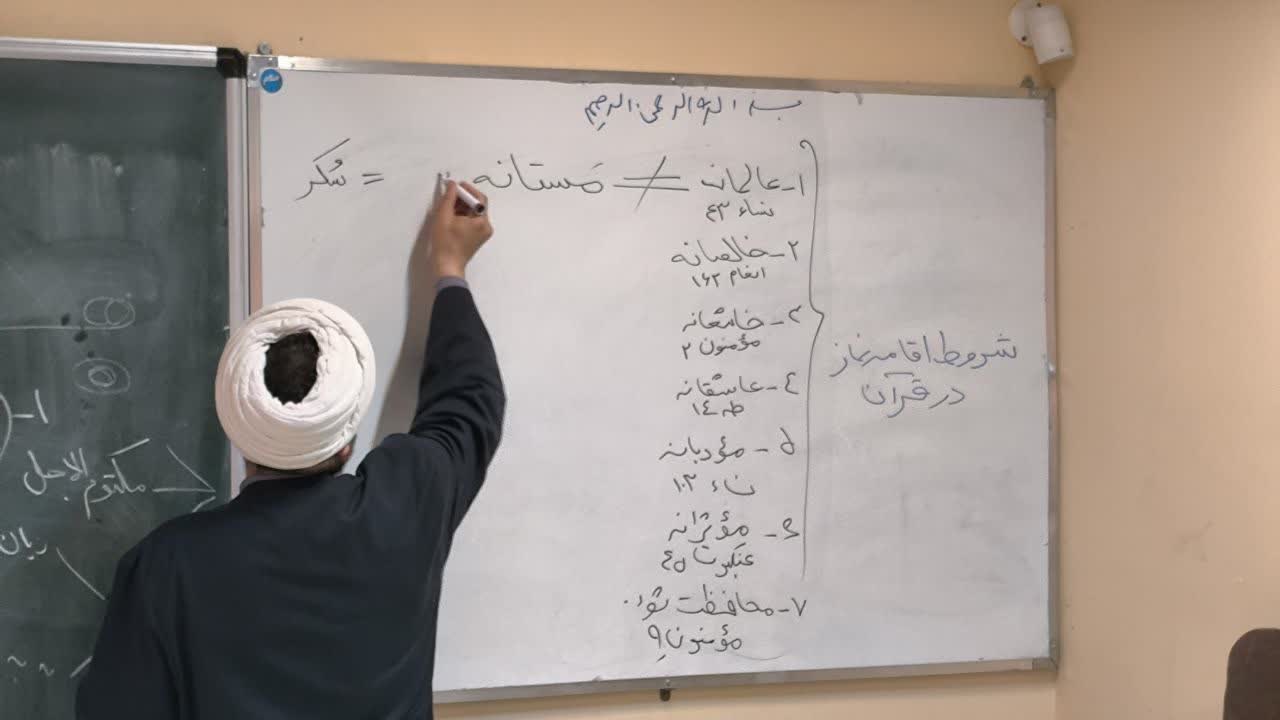 بسم الله الرحمن الرحیم
۱- عالمانه ≠ مَستانه = سُکر
نساء ۴۳
۲- خالصانه
انعام ۱۶۲
۳- خاشعانه
مؤمنون ۲
٤- عاشقانه
طه ١٤
۵- مؤدبانه
نساء ۱۰۲
۶- مؤثرانه
عنکبوت ٤۵
۷- محافظت شود
مؤمنون ۹
شروط اقامه نماز
در قرآن
۱-
مکتوم الاجل